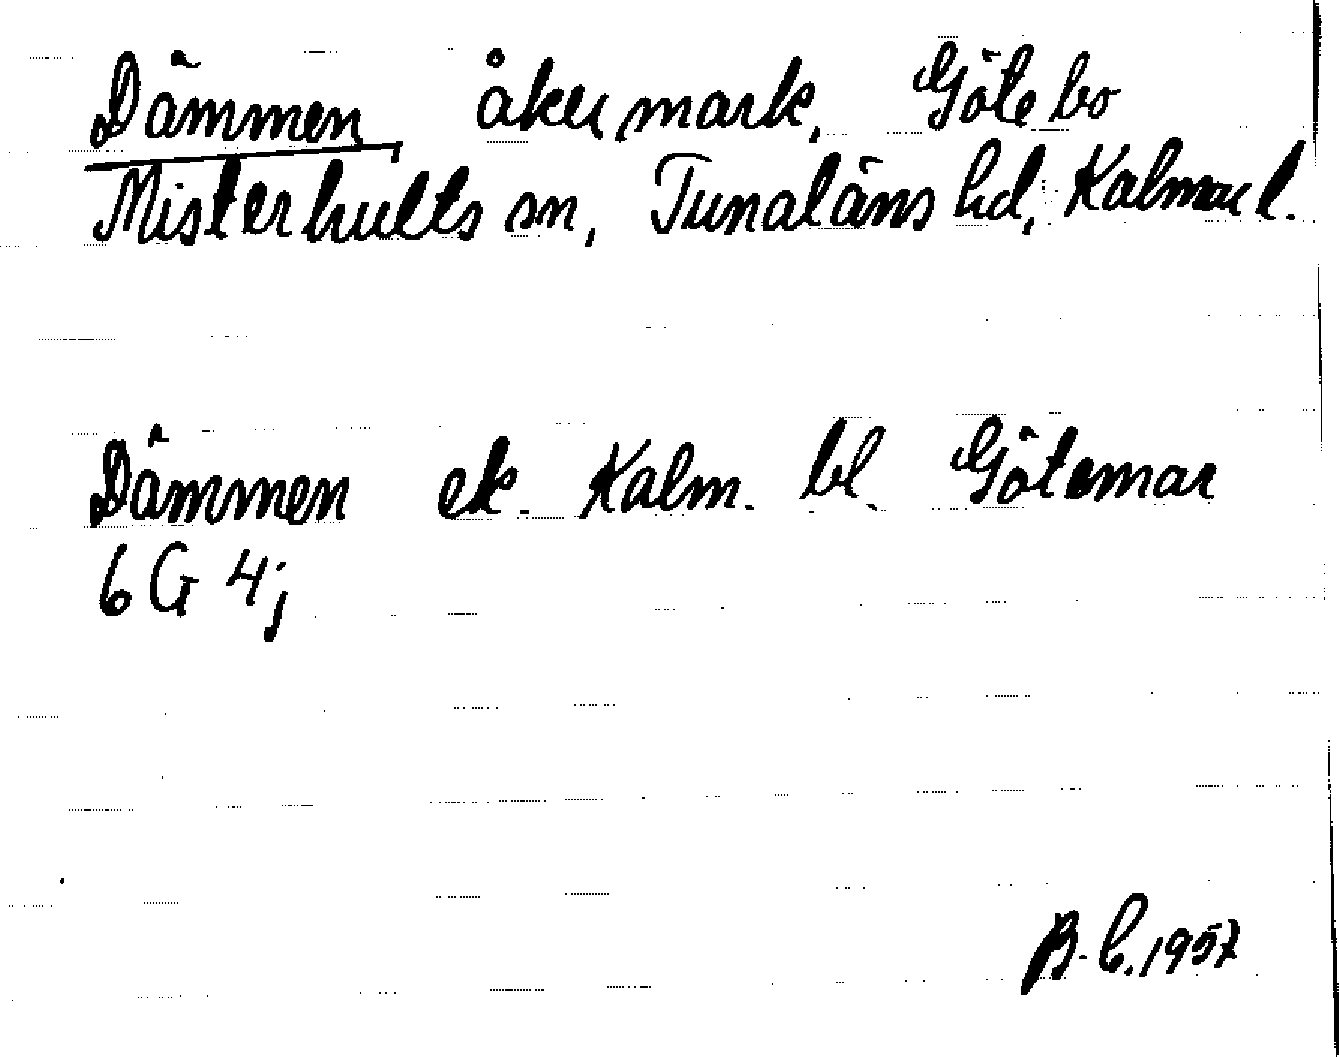 Dämmen, åkermark, Götebo
Misterhults sn, Tunaläns hd, Kalmar l.
Dämmen ek. Kalm. bl. Götemar
6 G 4j
B. C. 1957